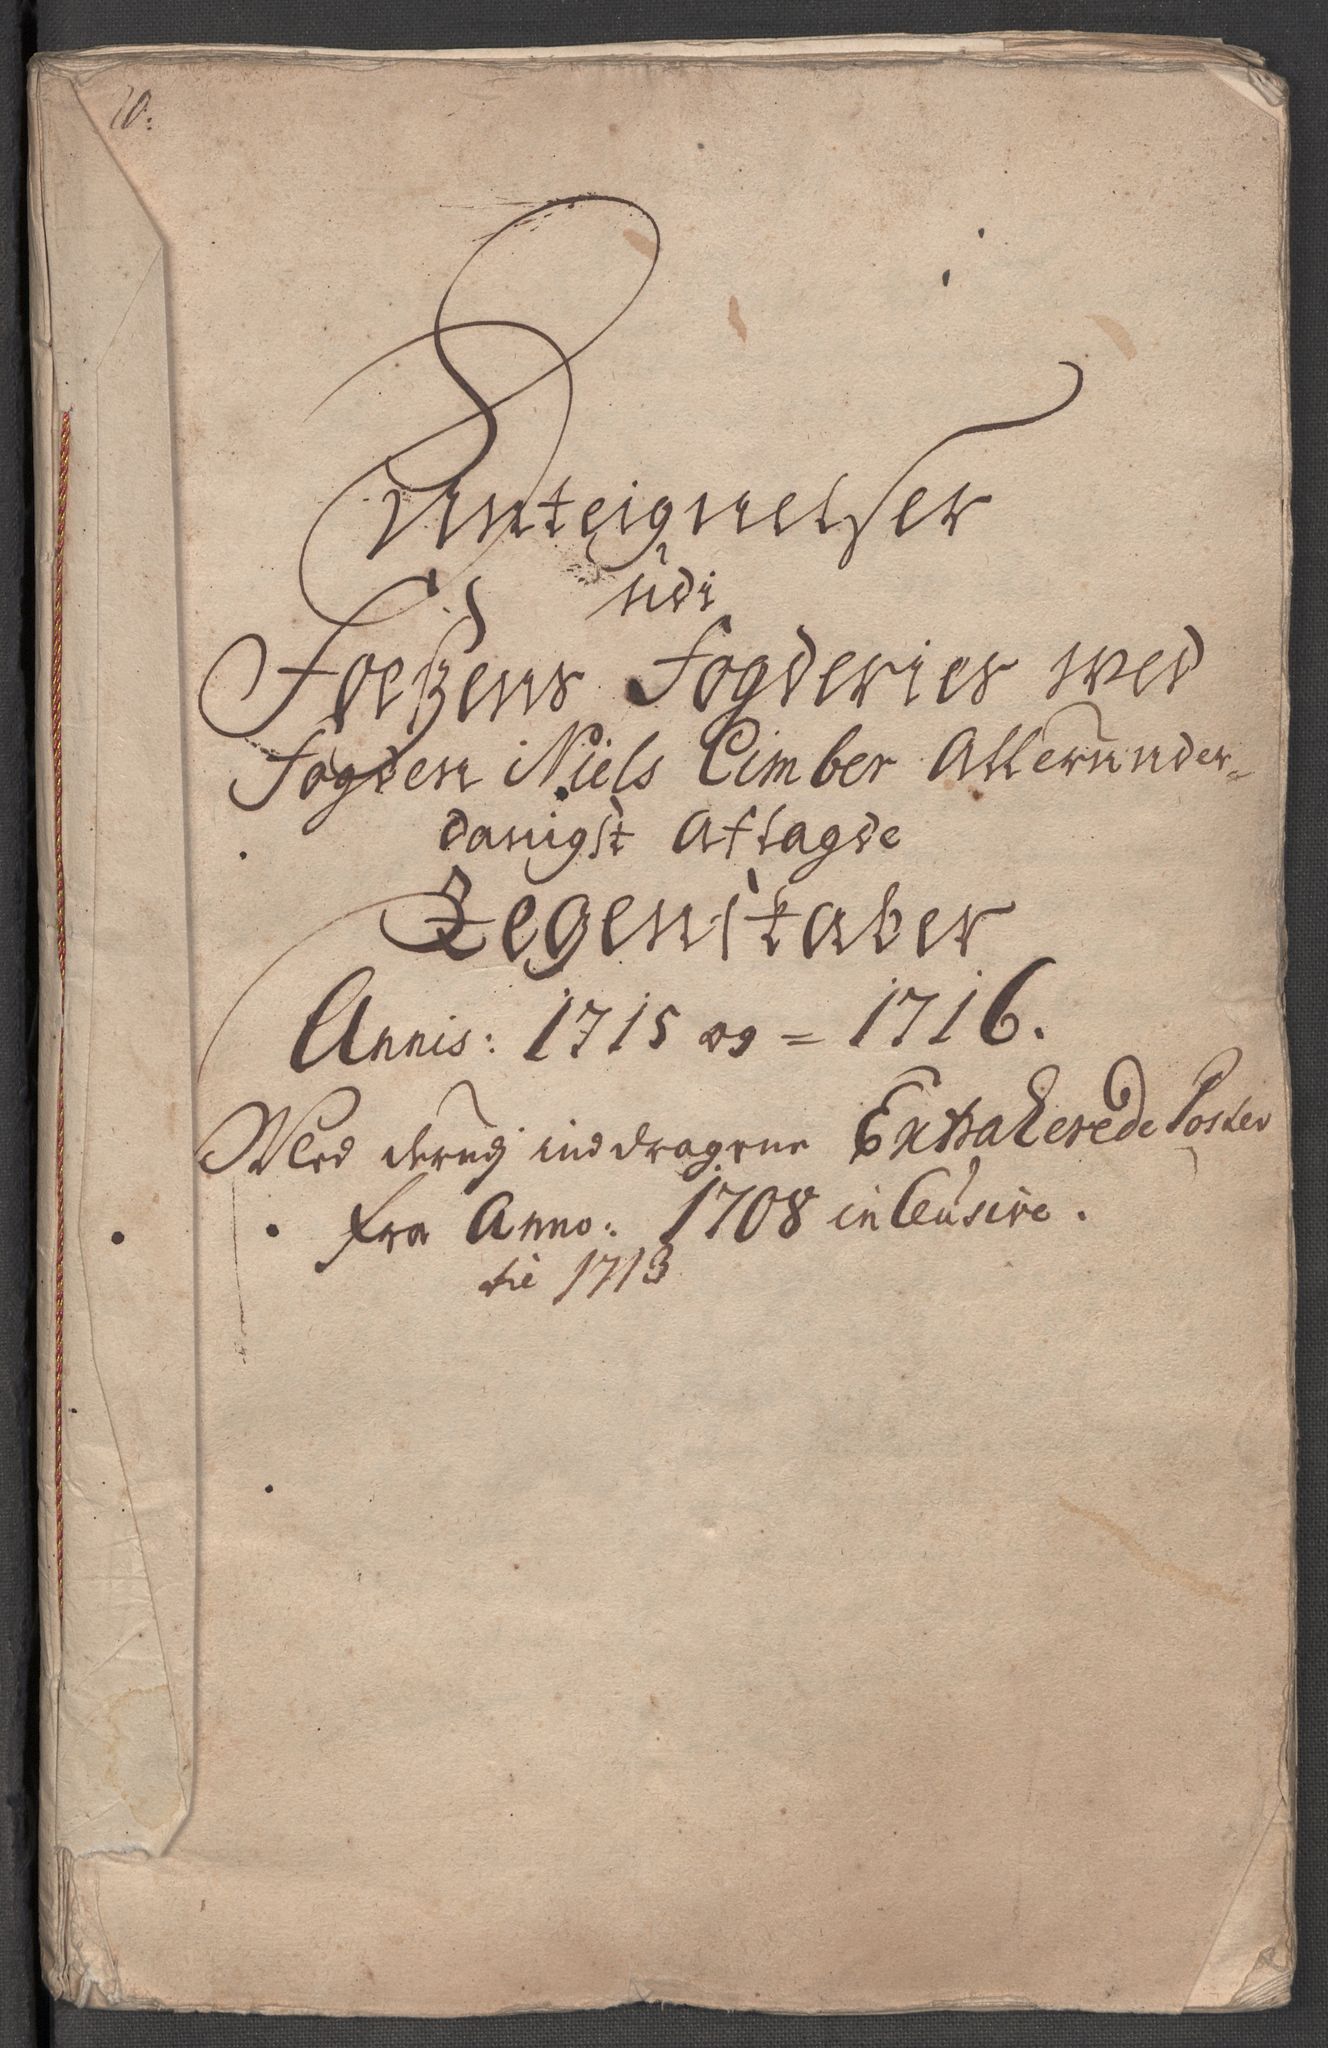 10:
Anteignelser
udi
Foeßens Fogderies wed
Fogden Niels Cimber Allerunder-
danigst Aflagde
Regenskaber
Annis: 1715 og = 1716.
Med derudj inddragene Extraherede Poster
fra Anno: 1708 inclusive.
til 1713